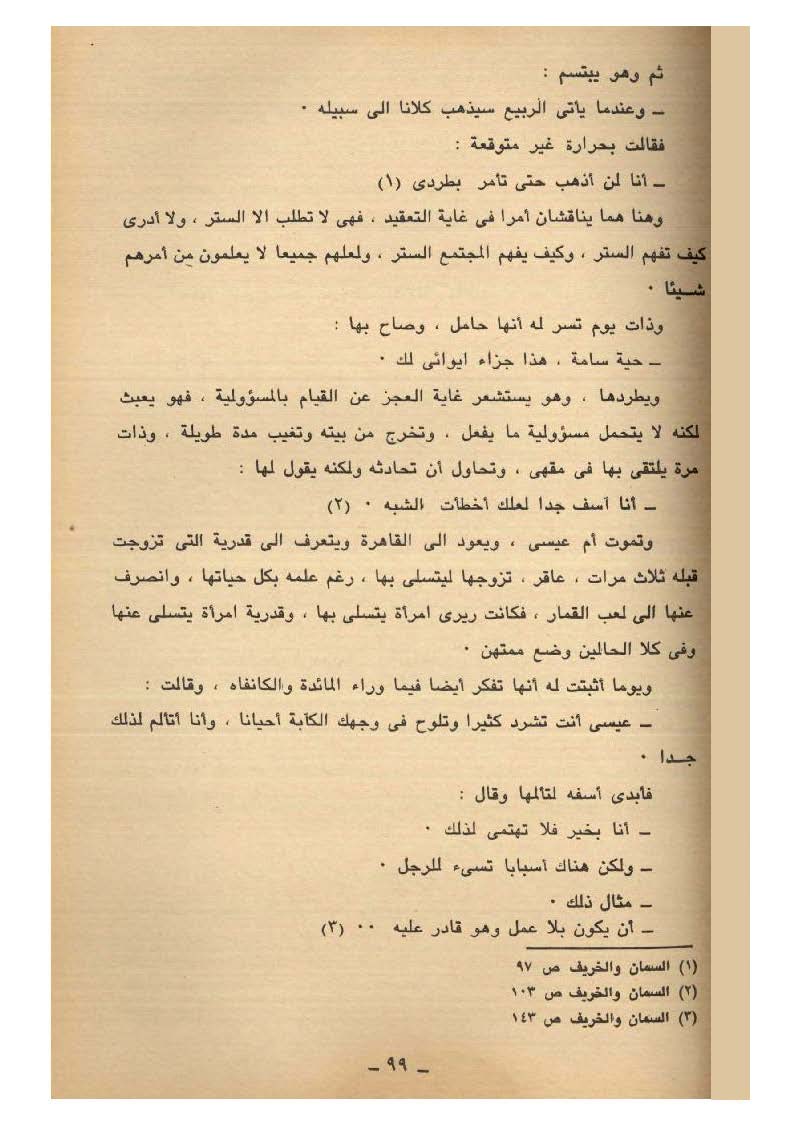 ثم وهو يبتسم :
ــ وعندما يأتى الربيع سيذهب كلانا الى سبيله ٠
فقالت بحرارة غير متوقعة :
ــ أنا لن أذهب حتى تأمر بطردى (١)
وهنا هما يناقشان أمرا فى غاية التعقيد ، فهى لا تطلب الا الستر ، ولا أدرى
كيف تفهم الستر ، وكيف يفهم المجتمع الستر ، ولعلهم جميعا لا يعلمون من أمرهم
شــيئا ٠
وذات يوم تسر له أنها حامل ، وصاح بها :
ــ حية سامة ، هذا جزاء ايوائى لك ٠
ويطردها ، وهو يستشعر غاية العجز عن القيام بالمسؤولية ، فهو يعبث
لكنه لا يتحمل مسؤولية ما يفعل ، وتخرج من بيته وتغيب مدة طويلة ، وذات
مرة يلتقى بها فى مقهى ، وتحاول أن تحادثه ولكنه يقول لها :
ــ أنا آسف جدا لعلك أخطأت الشبه ٠ (٢)
وتموت أم عيسى ، ويعود الى القاهرة ويتعرف الى قدرية التى تزوجت
قبله ثلاث مرات ، عاقر ، تزوجها ليتسلى بها ، رغم علمه بكل حياتها ، وانصرف
عنها الى لعب القمار ، فكانت ريرى امرأة يتسلى بها ، وقدرية امرأة يتسلى عنها
وفى كلا الحالين وضع ممتهن ٠
ويوما أثبتت له أنها تفكر أيضا فيما وراء المائدة والكانفاه ، وقالت :
ــ عيسى أنت تشرد كثيرا وتلوح فى وجهك الكآبة أحيانا ، وأنا أتألم لذلك
جــدا ٠
فأبدى أسفه لتألمها وقال :
ــ أنا بخير فلا تهتمى لذلك ٠
ــ ولكن هناك أسبابا تسىء للرجل ٠
ــ مثال ذلك ٠
ــ أن يكون بلا عمل وهو قادر عليه ٠٠ (٣)
(١) السمان والخريف ص ٩٧
(٢) السمان والخريف ص ١٠٣
(٣) السمان والخريف ص ١٤٣
ــ ٩٩ ــ